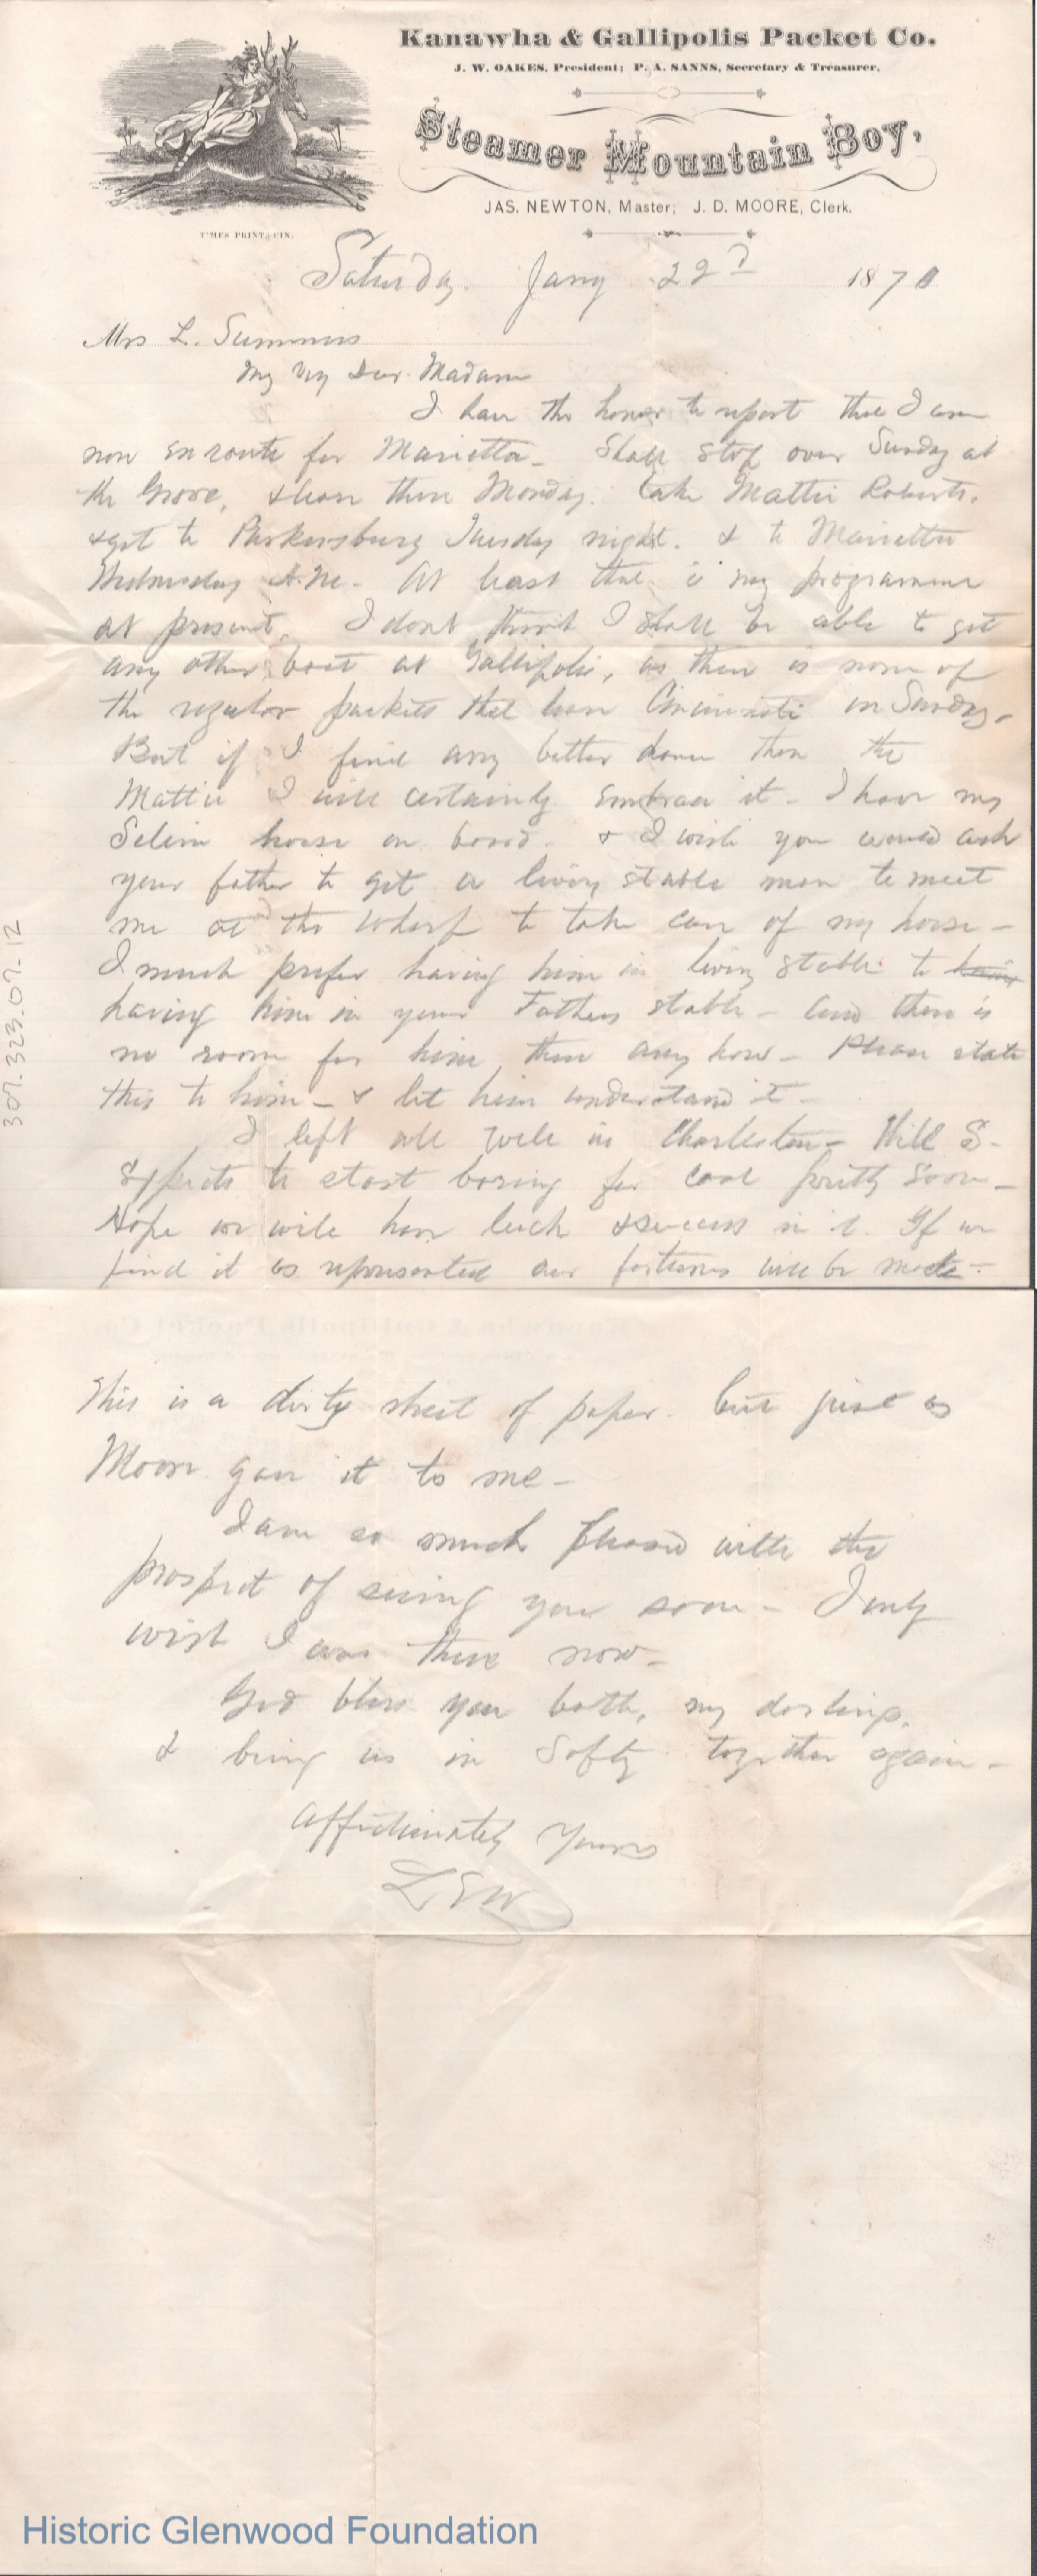 Kanawha & Gallipolis Packet Co.
J. W. OAKES, President; P. A. SANNS, Secretary & Treasurer.
Steamer Mountain Boy,
JAS. NEWTON, Master; J. D. MOORE, Clerk.
TIMES PRINT, CIN.
Saturday. Jany 22d 1870
Mrs L. Summers
My Very Dear Madam
I have the honor to report that I am
now en route for Marietta - Shall stop over Sunday at
the Grove, & leave there Monday. take Mattie Roberts.
& get to Parkersburg Tuesday night. & to Marietta
Wednesday A.M. - At least that is my programme
at present. I dont think I shall be able to get
any other boat at Gallipolis, as there is none of
the regular packets that leave Cincinnati on Sunday -
But if I find any better down than the
Mattie I will certainly embrace it - I have my
Selim horse on board - & I wish you would ask
your father to get a livery stable man to meet
me at the wharf to take care of my horse -
I much prefer having him in livery stable to having
having him in your Fathers stable - and there is
no room for him there any how - Please state
this to him - & let him understand it -
I left all well in Charleston - Will S -
Expects to start boring for coal pretty soon -
Hope we will have luck & success in it. If we
find it as represented our fortunes will be made -
This is a dirty sheet of paper. but just as
Moore gave it to me -
I am so much pleased with the
prospect of seeing you soon - I only
wish I was there now -
God bless you both, my darlings,
& bring us in safety together again -
Affectionately Yours
LSW
307.323.07.12
Historic Glenwood Foundation